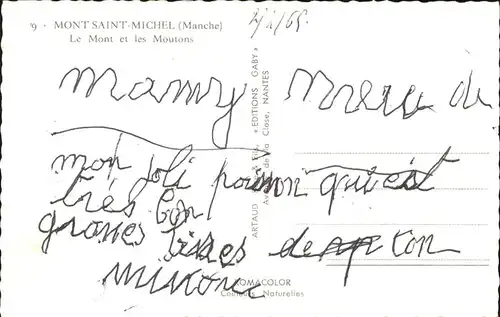 9 - MONT SAINT-MICHEL (Manche)
Le Mont et les Moutons
Mamy Merci de
mon joli poisson qui est
très bon
grosses bises de ton
ARTAUD « EDITIONS GABY »
de la Close, NANTES
OMACOLOR
Couleurs Naturelles